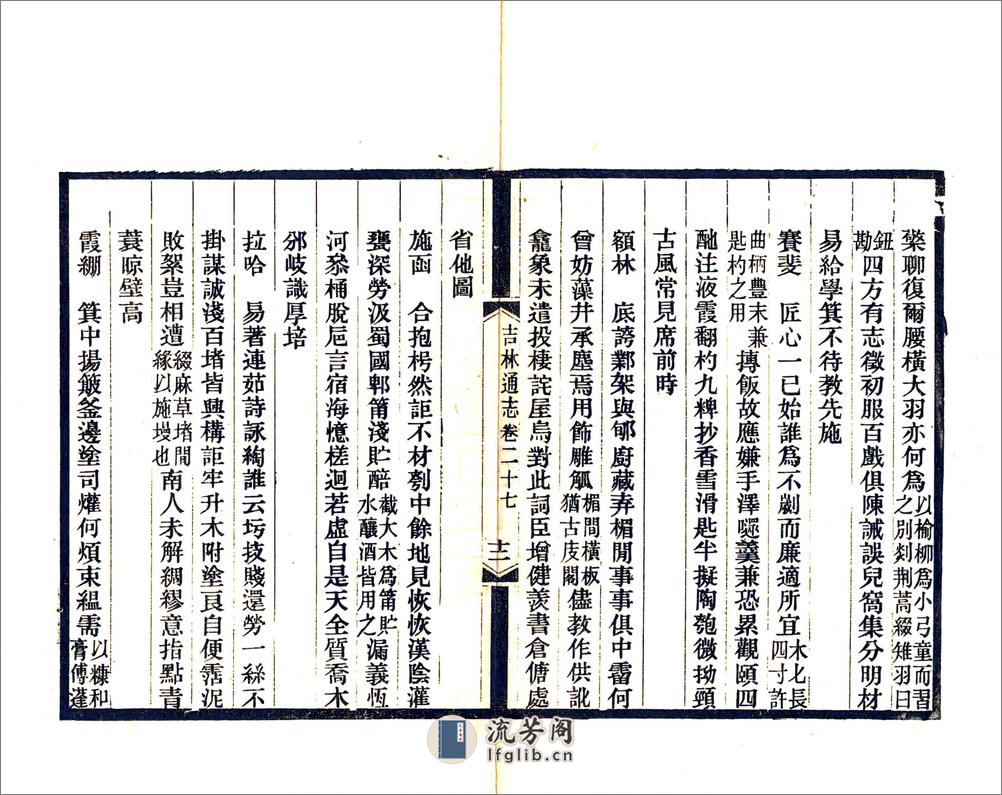 藥聊復爾腰橫大羽亦何爲以榆柳爲小弓童而習之別剡荆蒿綴雉羽曰
鈕勘四方有志徵初服百戲俱陳誡誤兒窩集分明材
易給學箕不待教先施
賽斐　匠心一已始誰爲不劌而廉適所宜木匕長四寸許
曲柄豊末兼匙杓之用摶飯故應嫌手澤嚃羹兼恐累觀頤四
酏注液霞翻杓九粺抄香雪滑匙半擬陶匏微拗頸
古風常見席前時
額林　底誇鄴架與郇廚藏弆楣閒事事俱中霤何
曾妨藻井承塵焉用飾雕觚楣間橫板猶古庋閣儘教作供訛
龕象未遣投棲詫屋烏對此詞臣增健羨書倉傭處
吉林通志 卷二十七 十二
省他圖
施函　合抱枵然詎不材刳中餘地見恢恢漢陰灌
甕深勞汲蜀國郫筩淺貯醅截大木爲筩貯水釀酒皆用之漏義恆
河叅桶脫卮言宿海憶槎迴若虛自是天全質喬木
邠岐識厚培
拉哈　易著連茹詩詠綯誰云圬技賤還勞一絲不
掛謀誠淺百堵皆興構詎牢升木附塗良自便霑泥
敗絮豈相遭綴麻草堵間緣以施墁也南人未解綢繆意指點青
蓑晾壁高
霞綳　箕中揚簸釜邊塗司爟何煩束縕需以糠和膏傅蓬
流芳阁
lfglib.cn